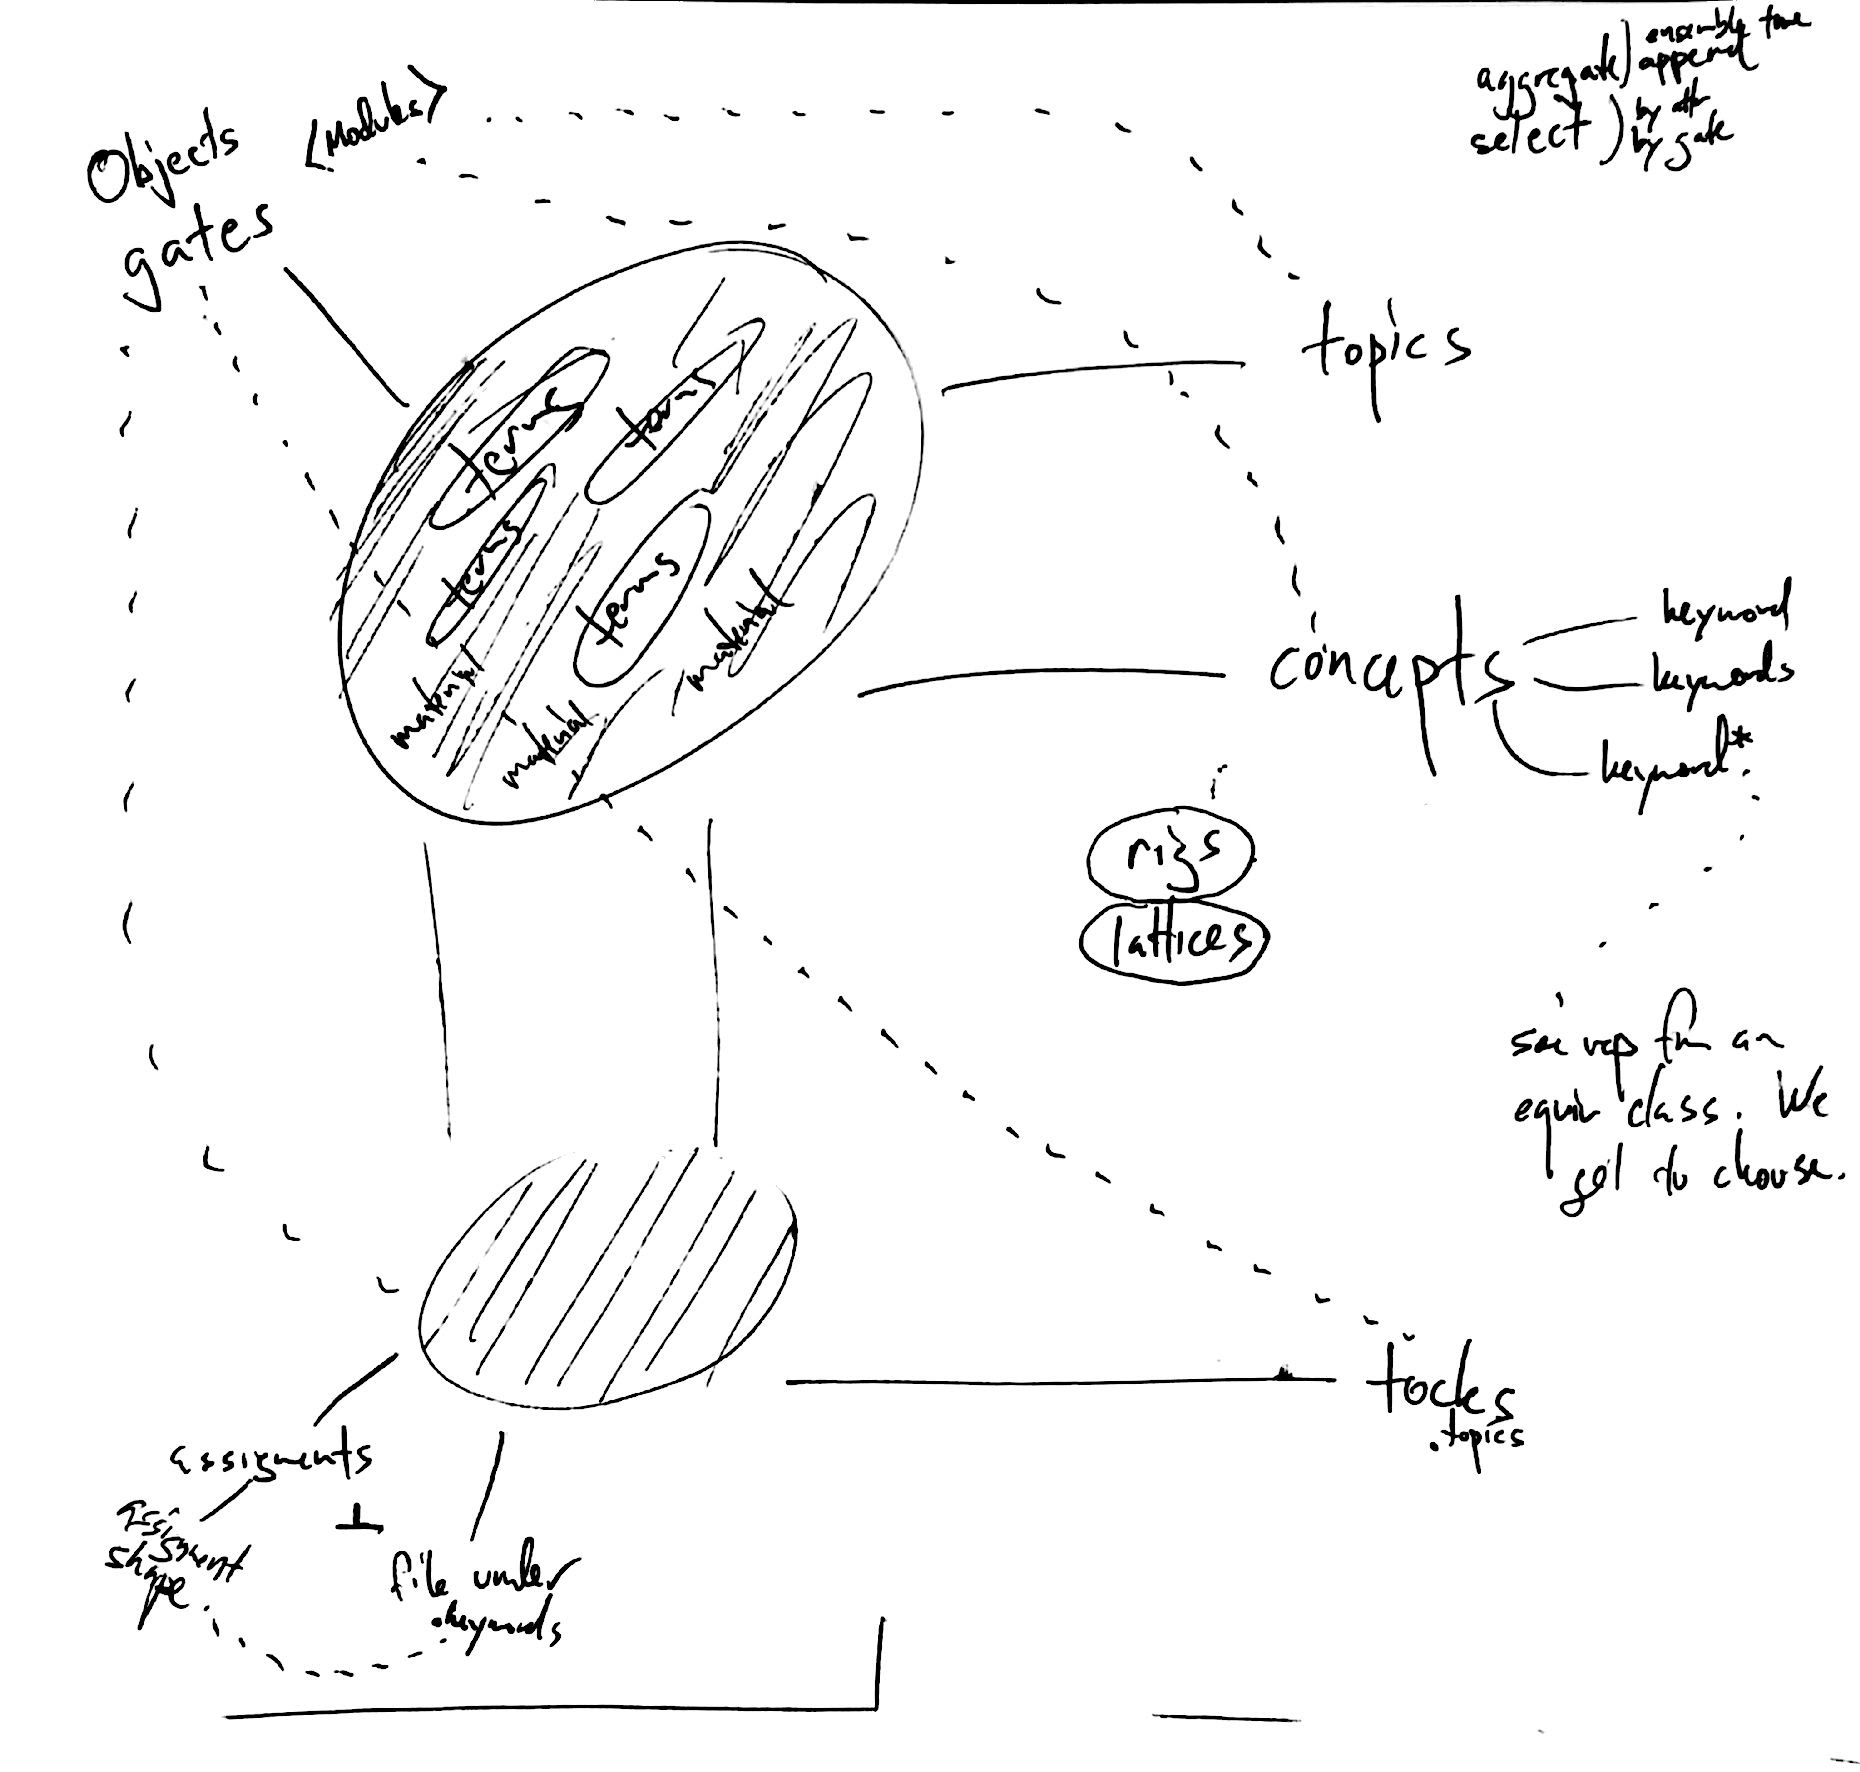 Objects <Modules>
gates
aggregate) ensemble
append
select ) by attr
by gate
topics
terms
terms
terms
terms
material
material
material
concepts
keyword
keywords
keyword*
rigs
lattices
equiv class. We
get to choose.
tocks
.topics
assigments
⊥
shape
file under
.keywords